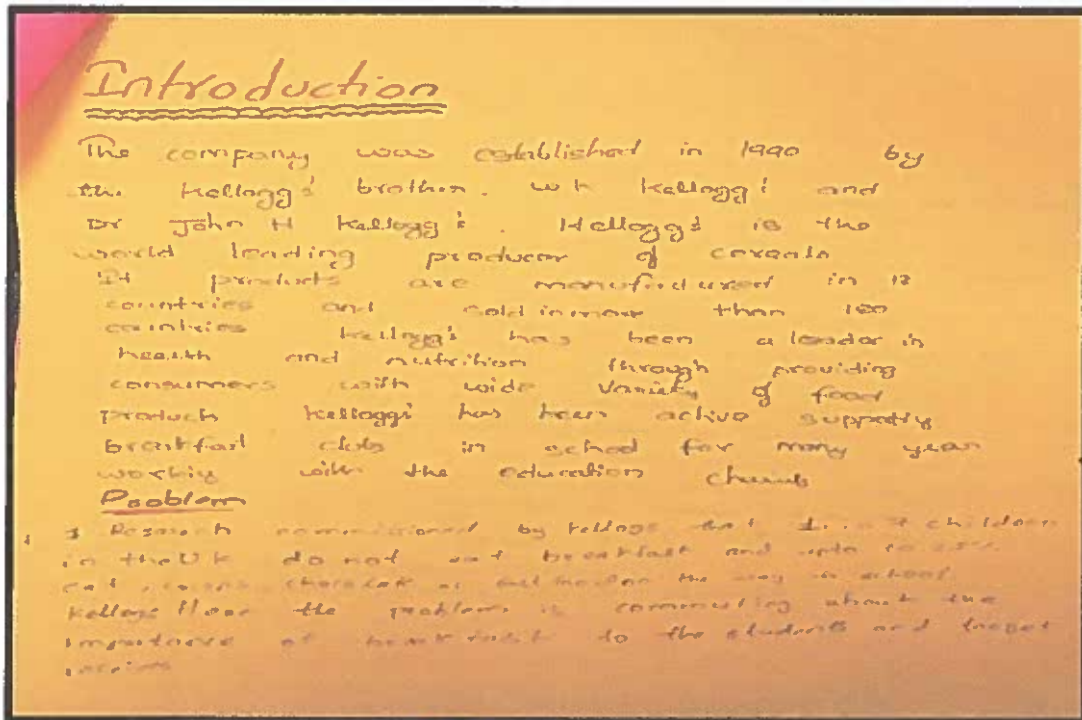 Introduction
The company was established in 1990 by
the Kellogg's brother. W K Kellogg's and
Dr John H Kellogg's. Kelloggs is the
world leading producer of cereals
It products are manufactured in 18
countries and sold in more than 180
countries Kellogg's has been a leader in
health and nutrition through providing
consumers with wide variety of food
products Kelloggs has been active
breakfast clubs in school for many year
with the education
Problem
1 Research commissioned by Kelloggs that children
in the U K do not eat breakfast and upto
the way
Kelloggs the problem is about the
importance of breakfast to the students and